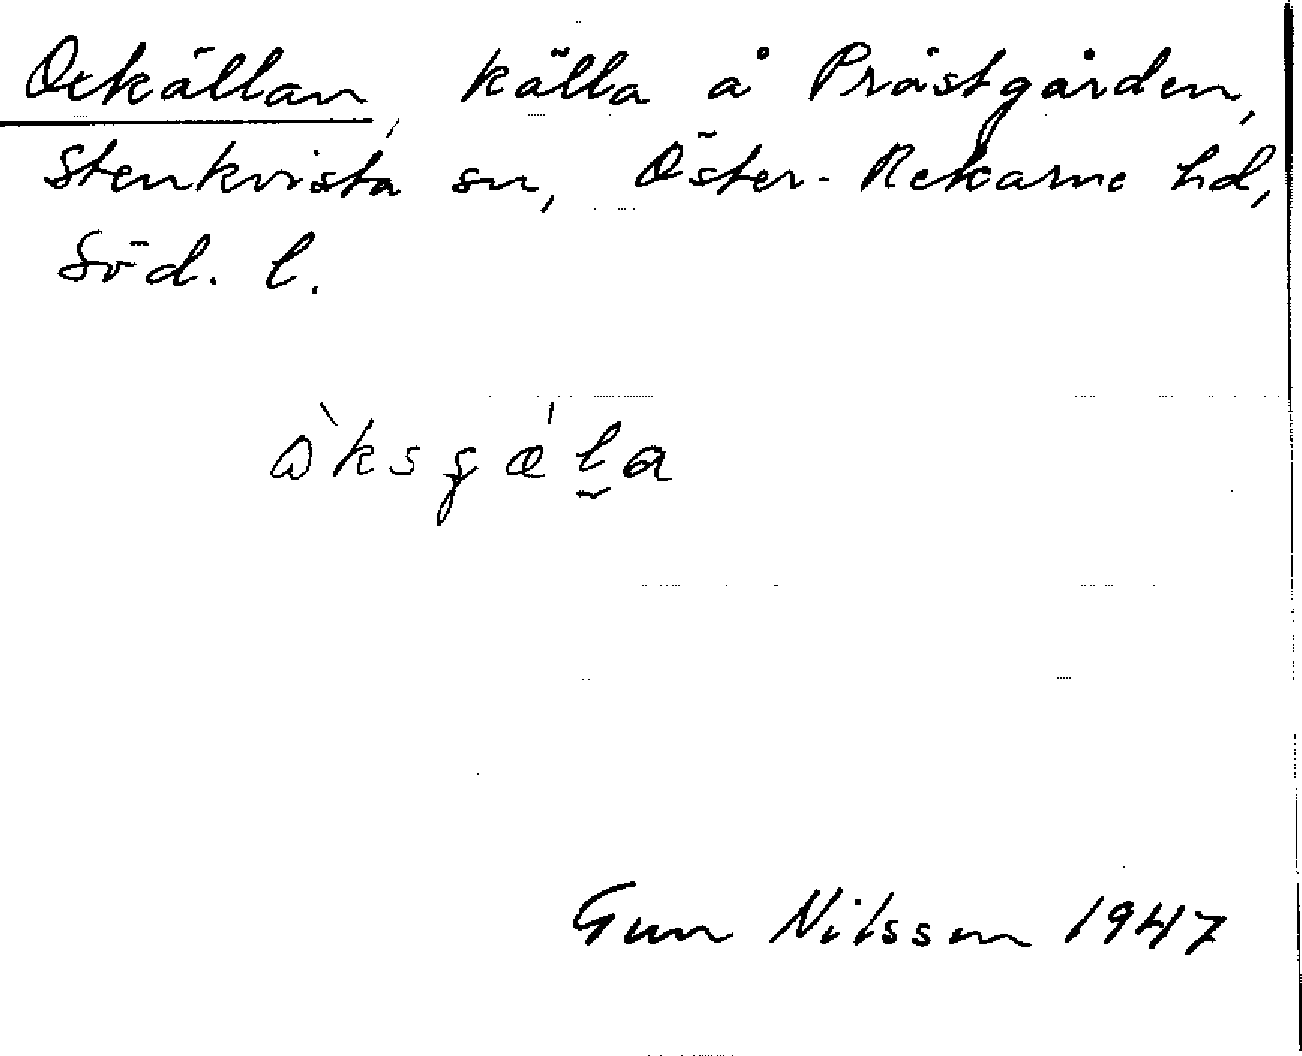 Oxkällan, källa å Prästgården,
Stenkvista sn, Öster-Rekarne hd,
Söd. l.
Gun Nilsson 1947